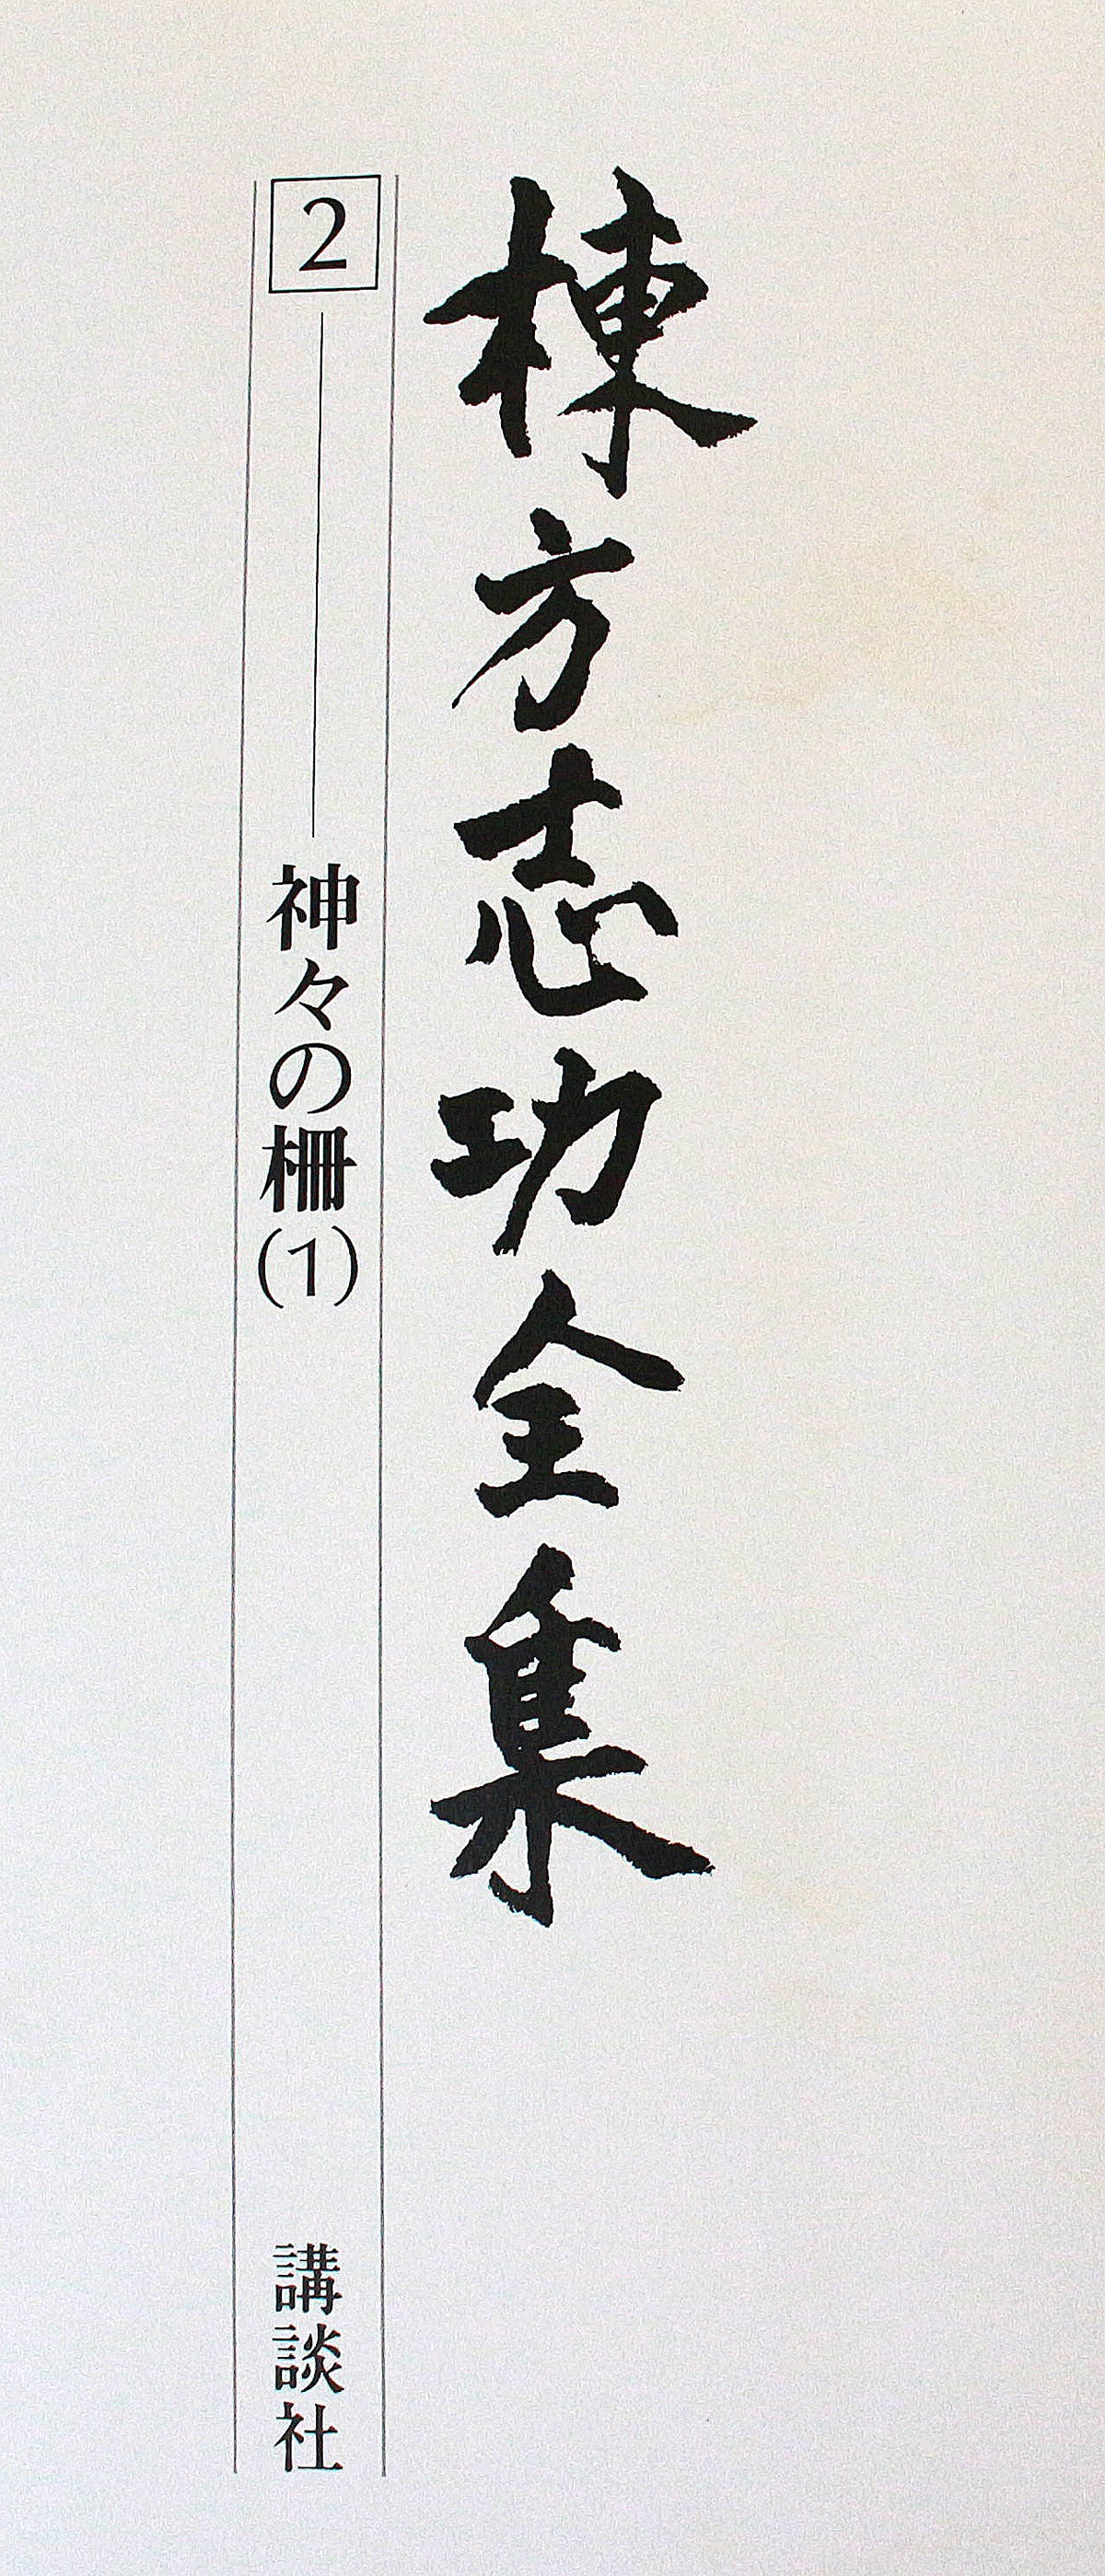 棟方志功全集
2——神々の柵(1)
講談社